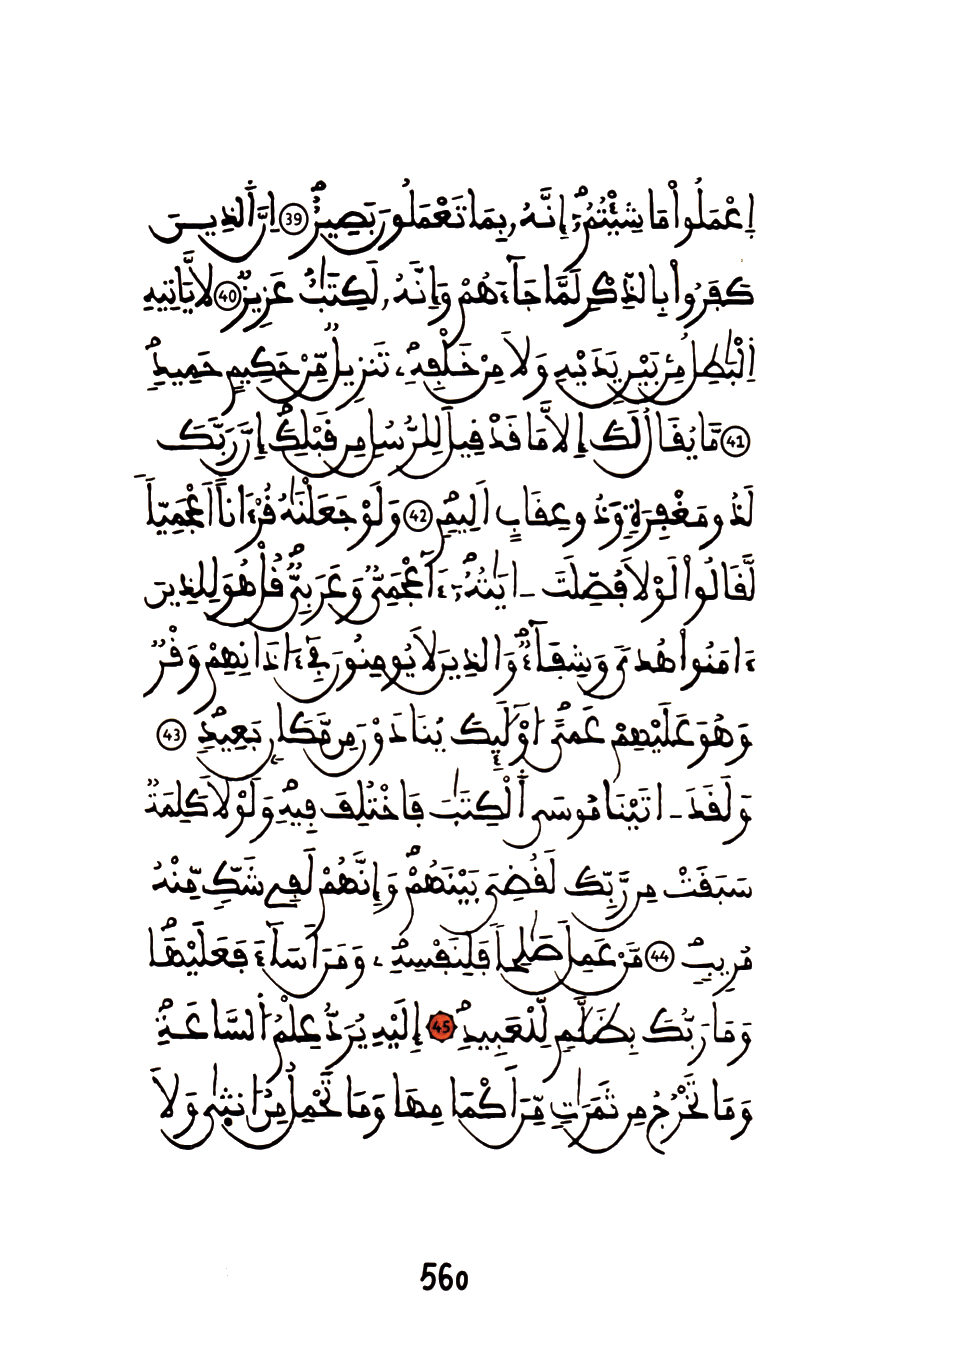 إِعْمَلُواْ مَا شِئْتُمُۥٓ إِنَّهُۥ بِمَا تَعْمَلُونَ بَصِيرٌ 39 اِنَّ اَلذِينَ
كَفَرُواْ بِالذِّكْرِ لَمَّا جَآءَهُمْ وَإِنَّهُۥ لَكِتَٰبٌ عَزِيزٌ 40 لَّا يَاتِيهِ
اِلْبَٰطِلُ مِنۢ بَيْنِ يَدَيْهِ وَلَا مِنْ خَلْفِهِۦ تَنزِيلٌ مِّنْ حَكِيمٍ حَمِيدٍ
41 مَّا يُقَالُ لَكَ إِلَّا مَا قَدْ قِيلَ لِلرُّسُلِ مِن قَبْلِكَ إِنَّ رَبَّكَ
لَذُو مَغْفِرَةٍ وَذُو عِقَابٍ اَلِيمٍ 42 وَلَوْ جَعَلْنَٰهُ قُرْءَاناً اَعْجَمِيّاً
لَّقَالُواْ لَوْلَا فُصِّلَتَ ـ ايَٰتُهُۥٓ ءَآعْجَمِيٌّ وَعَرَبِيٌّ قُلْ هُوَ لِلذِينَ
ءَامَنُواْ هُدىً وَشِفَآءٌ وَالذِينَ لَا يُومِنُونَ فِےٓ ءَاذَانِهِمْ وَقْرٌ
وَهُوَ عَلَيْهِمْ عَمىً اوْلَٰٓئِكَ يُنَادَوْنَ مِن مَّكَانٍۢ بَعِيدٍ 43
وَلَقَدَ ـ اتَيْنَا مُوسَى اَلْكِتَٰبَ فَاخْتُلِفَ فِيهِ وَلَوْلَا كَلِمَةٌ
سَبَقَتْ مِن رَّبِّكَ لَقُضِيَ بَيْنَهُمْ وَإِنَّهُمْ لَفِے شَكٍّ مِّنْهُ
مُرِيبٍ 44 مَّنْ عَمِلَ صَٰلِحاً فَلِنَفْسِهِۦ وَمَنَ اَسَآءَ فَعَلَيْهَا
وَمَا رَبُّكَ بِظَلَّٰمٍ لِّلْعَبِيدِ 45 إِلَيْهِ يُرَدُّ عِلْمُ اُلسَّاعَةِ
وَمَا تَخْرُجُ مِن ثَمَرَٰتٍ مِّنَ اَكْمَامِهَا وَمَا تَحْمِلُ مِنُ انثىٰ وَلَا
560